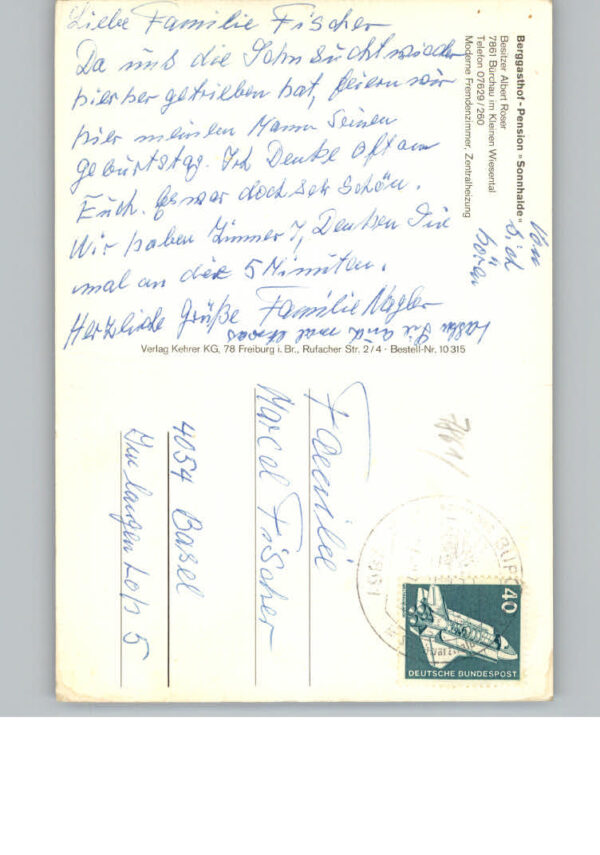 Liebe Familie Fischer
Da uns die Sehnsucht wieder
hierher getrieben hat, feiern wir
hier meinen Mann seinen
Geburtstag. Ich Denke oft an
Euch. Es war doch sehr Schön.
Wir haben Zimmer 7, Denken Sie
mal an die 5 Minuten.
Herzliche Grüße Familie Nagler
lassen Sie auch mal etwas
Von
Sich
hören
Berggasthof - Pension »Sonnhalde«
Besitzer Albert Roser
7861 Bürchau im Kleinen Wiesental
Telefon 07629/260
Moderne Fremdenzimmer, Zentralheizung
Verlag Kehrer KG, 78 Freiburg i. Br., Rufacher Str. 2/4 · Bestell-Nr. 10 315
Familie
Marcel Fischer
4054 Basel
Im langen Loh 5
7861
40
DEUTSCHE BUNDESPOST